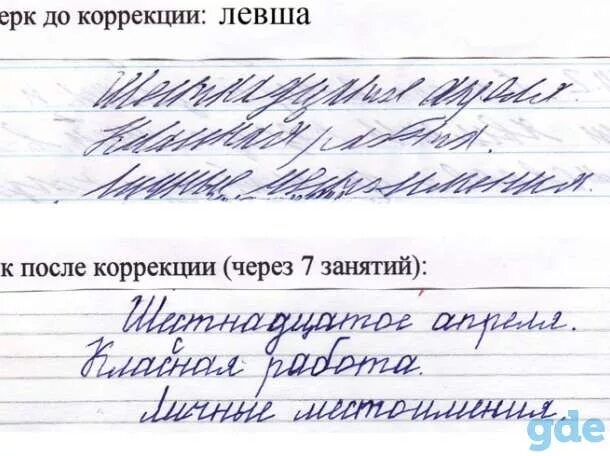 ерк до коррекции: левша
Шестнадцатое апреля.
Классная работа.
Личные местоимения.
к после коррекции (через 7 занятий):
Шестнадцатое апреля.
Классная работа.
Личные местоимения.
gde